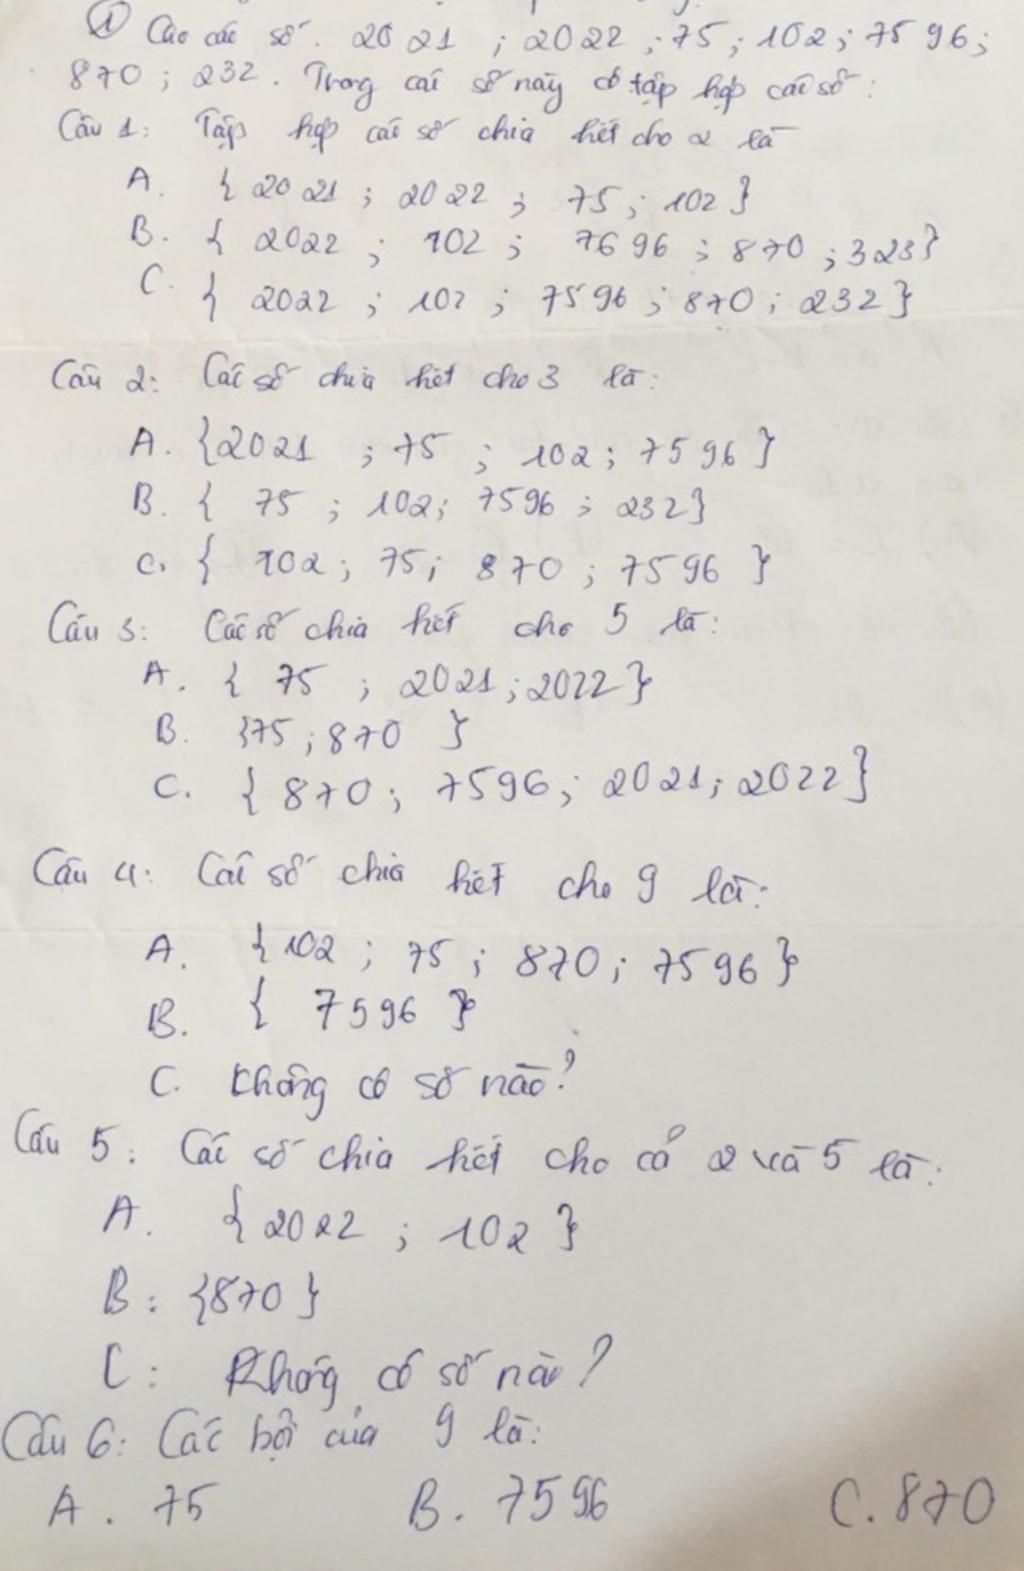 ① Cho các số. 2021 ; 2022 ; 75 ; 102 ; 7596 ;
870 ; 232. Trong các số này có tập hợp các số :
Câu 1: Tập hợp các số chia hết cho 2 là
A. { 2021 ; 2022 ; 75 ; 102 }
B. { 2022 ; 102 ; 7696 ; 870 ; 323 }
C. { 2022 ; 102 ; 7596 ; 870 ; 232 }
Câu 2: Các số chia hết cho 3 là :
A. {2021 ; 75 ; 102 ; 7596 }
B. { 75 ; 102; 7596 ; 232}
C. { 102 ; 75; 870 ; 7596 }
Câu 3: Các số chia hết cho 5 là :
A. { 75 ; 2021 ; 2022 }
B. {75 ; 870 }
C. { 870 ; 7596 ; 2021 ; 2022 }
Câu 4: Các số chia hết cho 9 là :
A. { 102 ; 75 ; 870 ; 7596 }
B. { 7596 }
C. Không có số nào?
Câu 5 : Các số chia hết cho cả 2 và 5 là :
A. { 2022 ; 102 }
B : {870 }
C : Không có số nào ?
Câu 6 : Các bội của 9 là :
A . 75 B . 7596 C . 870